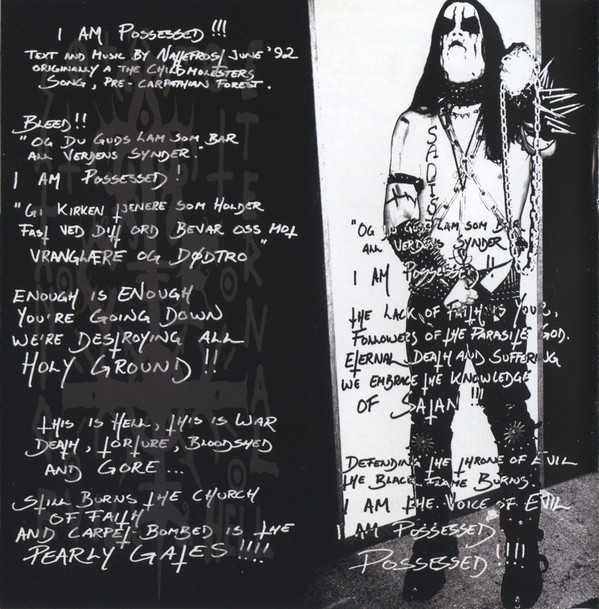 I AM POSSESSED !!!
TEXT AND MUSIC BY NATTEFROST JUNE '92
ORIGINALLY A THE CHILDMOLESTERS
SONG, PRE-CARPATHIAN FOREST.
BLEED!!
"OG DU GUDS LAM SOM BAR
ALL VERDENS SYNDER."
I AM POSSESSED !
"GI KIRKEN TJENERE SOM HOLDER
FAST VED DITT ORD BEVAR OSS MOT
VRANGLÆRE OG DØDTRO"
ENOUGH IS ENOUGH
YOU'RE GOING DOWN
WE'RE DESTROYING ALL
HOLY GROUND !!
THIS IS HELL, THIS IS WAR
DEATH, TORTURE, BLOODSHED
AND GORE...
STILL BURNS THE CHURCH
OF FAITH
AND CARPET BOMBED IS THE
PEARLY GATES !!!!
SADIST
"OG DU GUDS LAM SOM BAR
ALL VERDENS SYNDER"
I AM POSSESSED !!
THE LACK OF FAITH IS YOURS,
FOLLOWERS OF THE PARASITE GOD.
ETERNAL DEATH AND SUFFERING
WE EMBRACE THE KNOWLEDGE
OF SATAN !!!
DEFENDING THE THRONE OF EVIL
THE BLACK FLAME BURNS.
I AM THE VOICE OF EVIL
I AM POSSESSED
POSSESSED !!!!